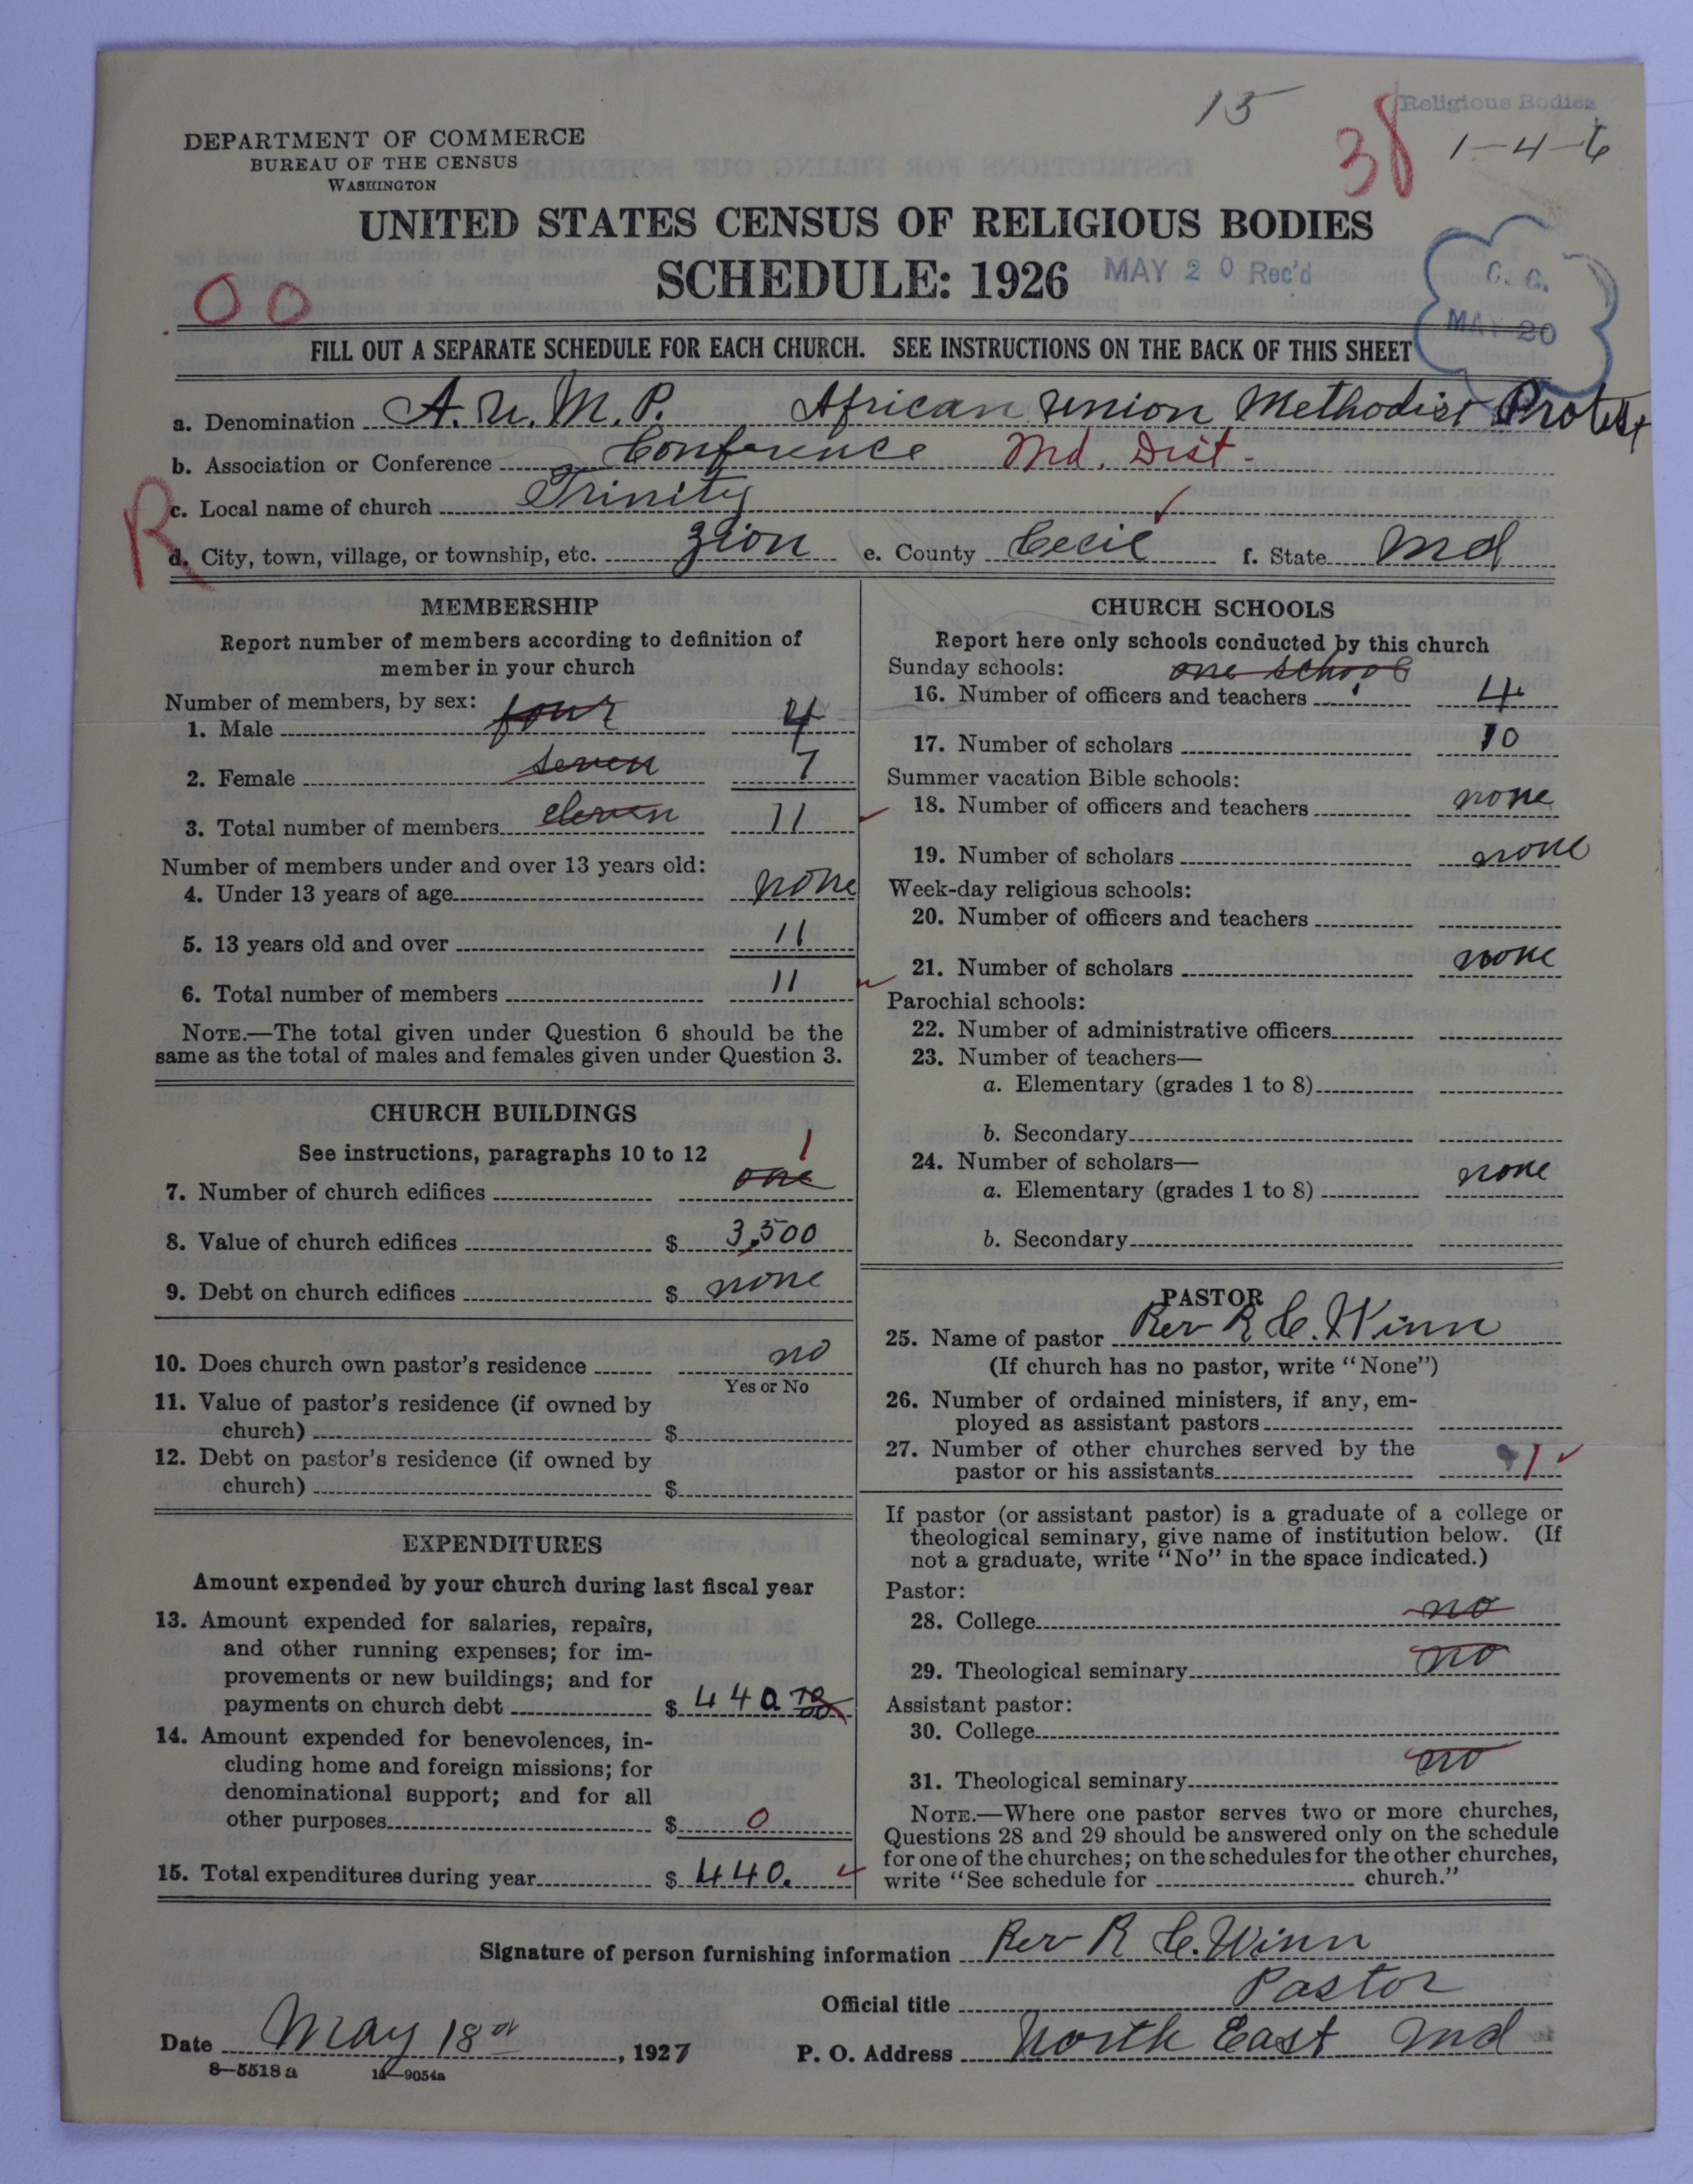 15
Religious Bodies
38 1-4-6
DEPARTMENT OF COMMERCE
BUREAU OF THE CENSUS
WASHINGTON
UNITED STATES CENSUS OF RELIGIOUS BODIES
SCHEDULE: 1926 MAY 20 Rec'd
C. C.
MAY 20
00
FILL OUT A SEPARATE SCHEDULE FOR EACH CHURCH. SEE INSTRUCTIONS ON THE BACK OF THIS SHEET
a. Denomination A. U. M. P. African Union Methodist Protest
b. Association or Conference Conference Md. Dist.
R
c. Local name of church Trinity
d. City, town, village, or township, etc. Zion e. County Cecil f. State Md
MEMBERSHIP
Report number of members according to definition of
member in your church
Number of members, by sex:
1. Male four 4
2. Female seven 7
3. Total number of members eleven 11
Number of members under and over 13 years old:
4. Under 13 years of age none
5. 13 years old and over 11
6. Total number of members 11
NOTE.—The total given under Question 6 should be the
same as the total of males and females given under Question 3.
CHURCH BUILDINGS
See instructions, paragraphs 10 to 12
1
7. Number of church edifices one
8. Value of church edifices $ 3,500
9. Debt on church edifices $ none
10. Does church own pastor's residence no
Yes or No
11. Value of pastor's residence (if owned by
church) $
12. Debt on pastor's residence (if owned by
church) $
EXPENDITURES
Amount expended by your church during last fiscal year
13. Amount expended for salaries, repairs,
and other running expenses; for im-
provements or new buildings; and for
payments on church debt $ 440.
14. Amount expended for benevolences, in-
cluding home and foreign missions; for
denominational support; and for all
other purposes $ 0
15. Total expenditures during year $ 440.
CHURCH SCHOOLS
Report here only schools conducted by this church
Sunday schools: one school
16. Number of officers and teachers 4
17. Number of scholars 10
Summer vacation Bible schools:
18. Number of officers and teachers none
19. Number of scholars none
Week-day religious schools:
20. Number of officers and teachers
21. Number of scholars none
Parochial schools:
22. Number of administrative officers
23. Number of teachers—
a. Elementary (grades 1 to 8)
b. Secondary
24. Number of scholars—
a. Elementary (grades 1 to 8) none
b. Secondary
PASTOR
25. Name of pastor Rev R C. Winn
(If church has no pastor, write "None")
26. Number of ordained ministers, if any, em-
ployed as assistant pastors
27. Number of other churches served by the
pastor or his assistants 1
If pastor (or assistant pastor) is a graduate of a college or
theological seminary, give name of institution below. (If
not a graduate, write "No" in the space indicated.)
Pastor:
28. College no
29. Theological seminary no
Assistant pastor:
30. College
31. Theological seminary no
NOTE.—Where one pastor serves two or more churches,
Questions 28 and 29 should be answered only on the schedule
for one of the churches; on the schedules for the other churches,
write "See schedule for church."
Signature of person furnishing information Rev R C. Winn
Official title Pastor
Date May 18, 1927 P. O. Address North East Md
8—5518 a 11—9054a